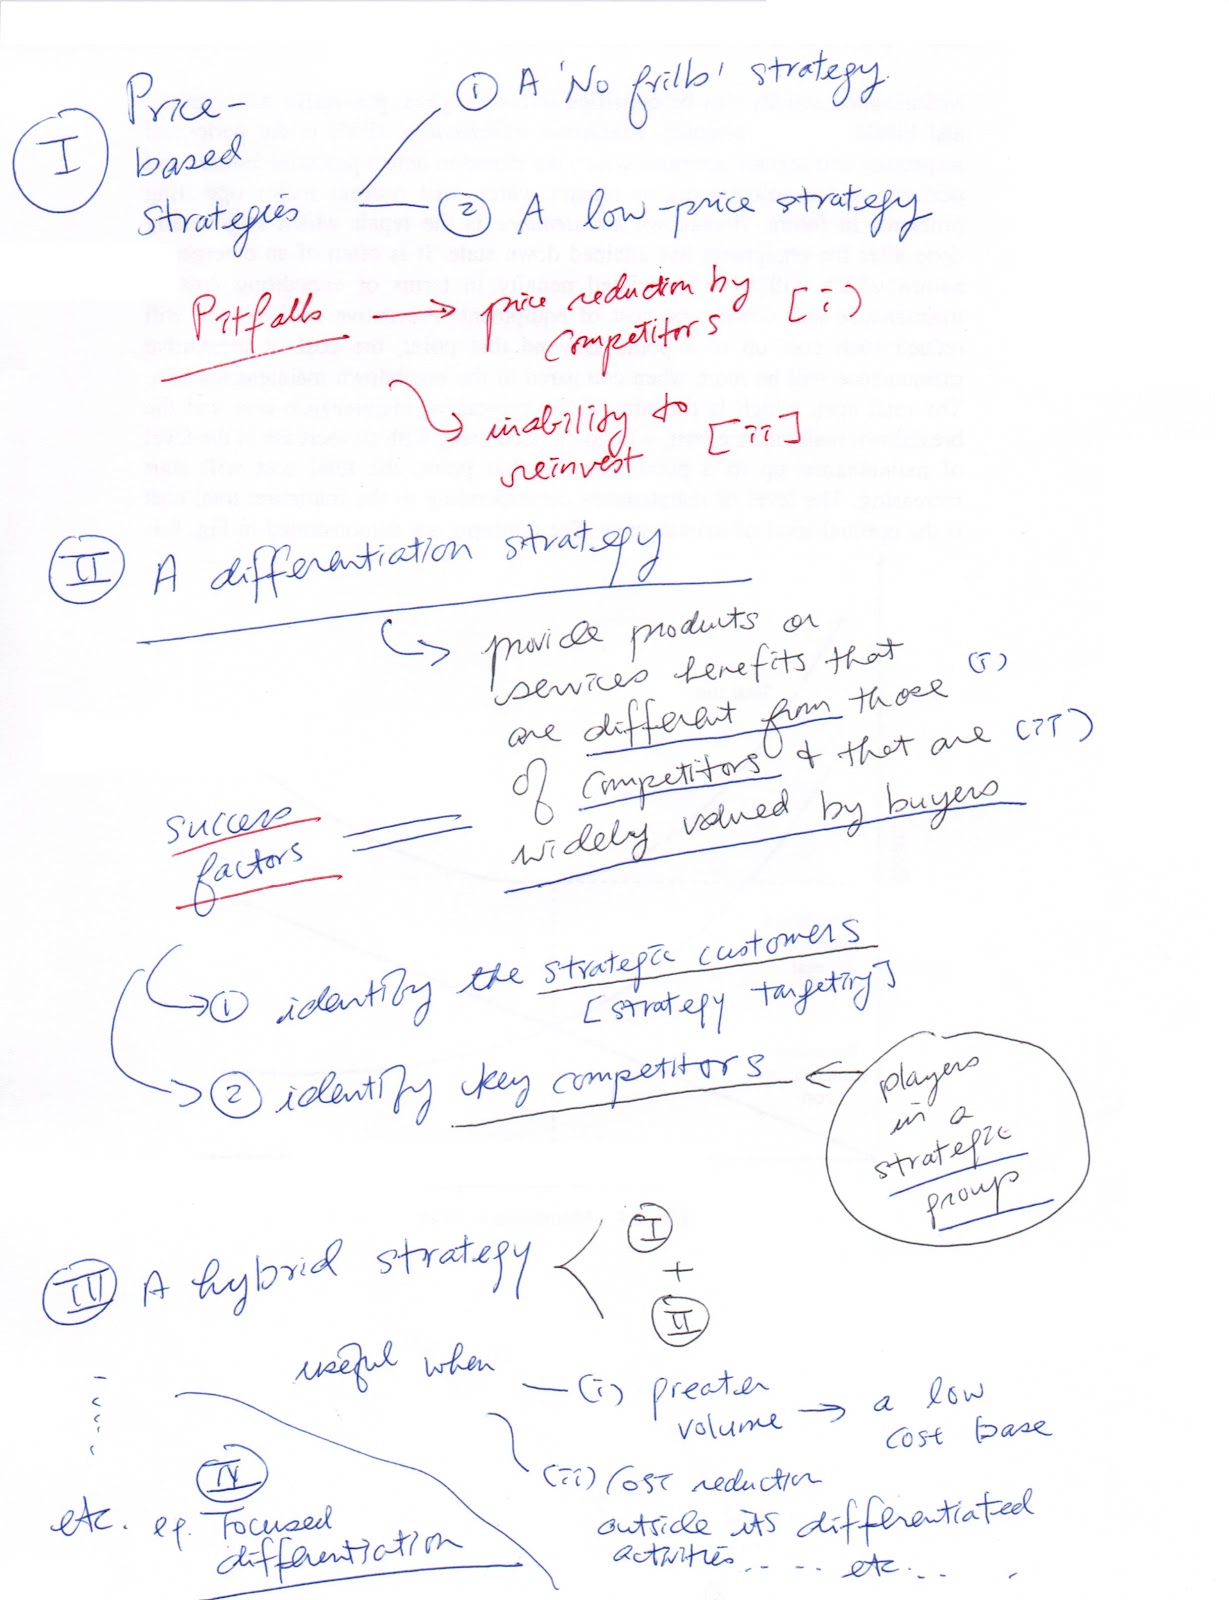 I
Price-
based
strategies
① A 'No frills' strategy
② A low-price strategy
Pitfalls → price reduction by [i)
competitors
inability to [ii]
reinvest
II A differentiation strategy
provide products or
services benefits that
are different from those (i)
of competitors & that are (ii)
widely valued by buyers
success
factors
① identify the strategic customers
[strategy targeting]
② identify key competitors ←
players
in a
strategic
group
III A hybrid strategy
I
+
II
useful when
(i) greater
volume → a low
cost base
(ii) Cost reduction
outside its differentiated
activities..... etc...
IV
etc. eg. Focused
differentiation